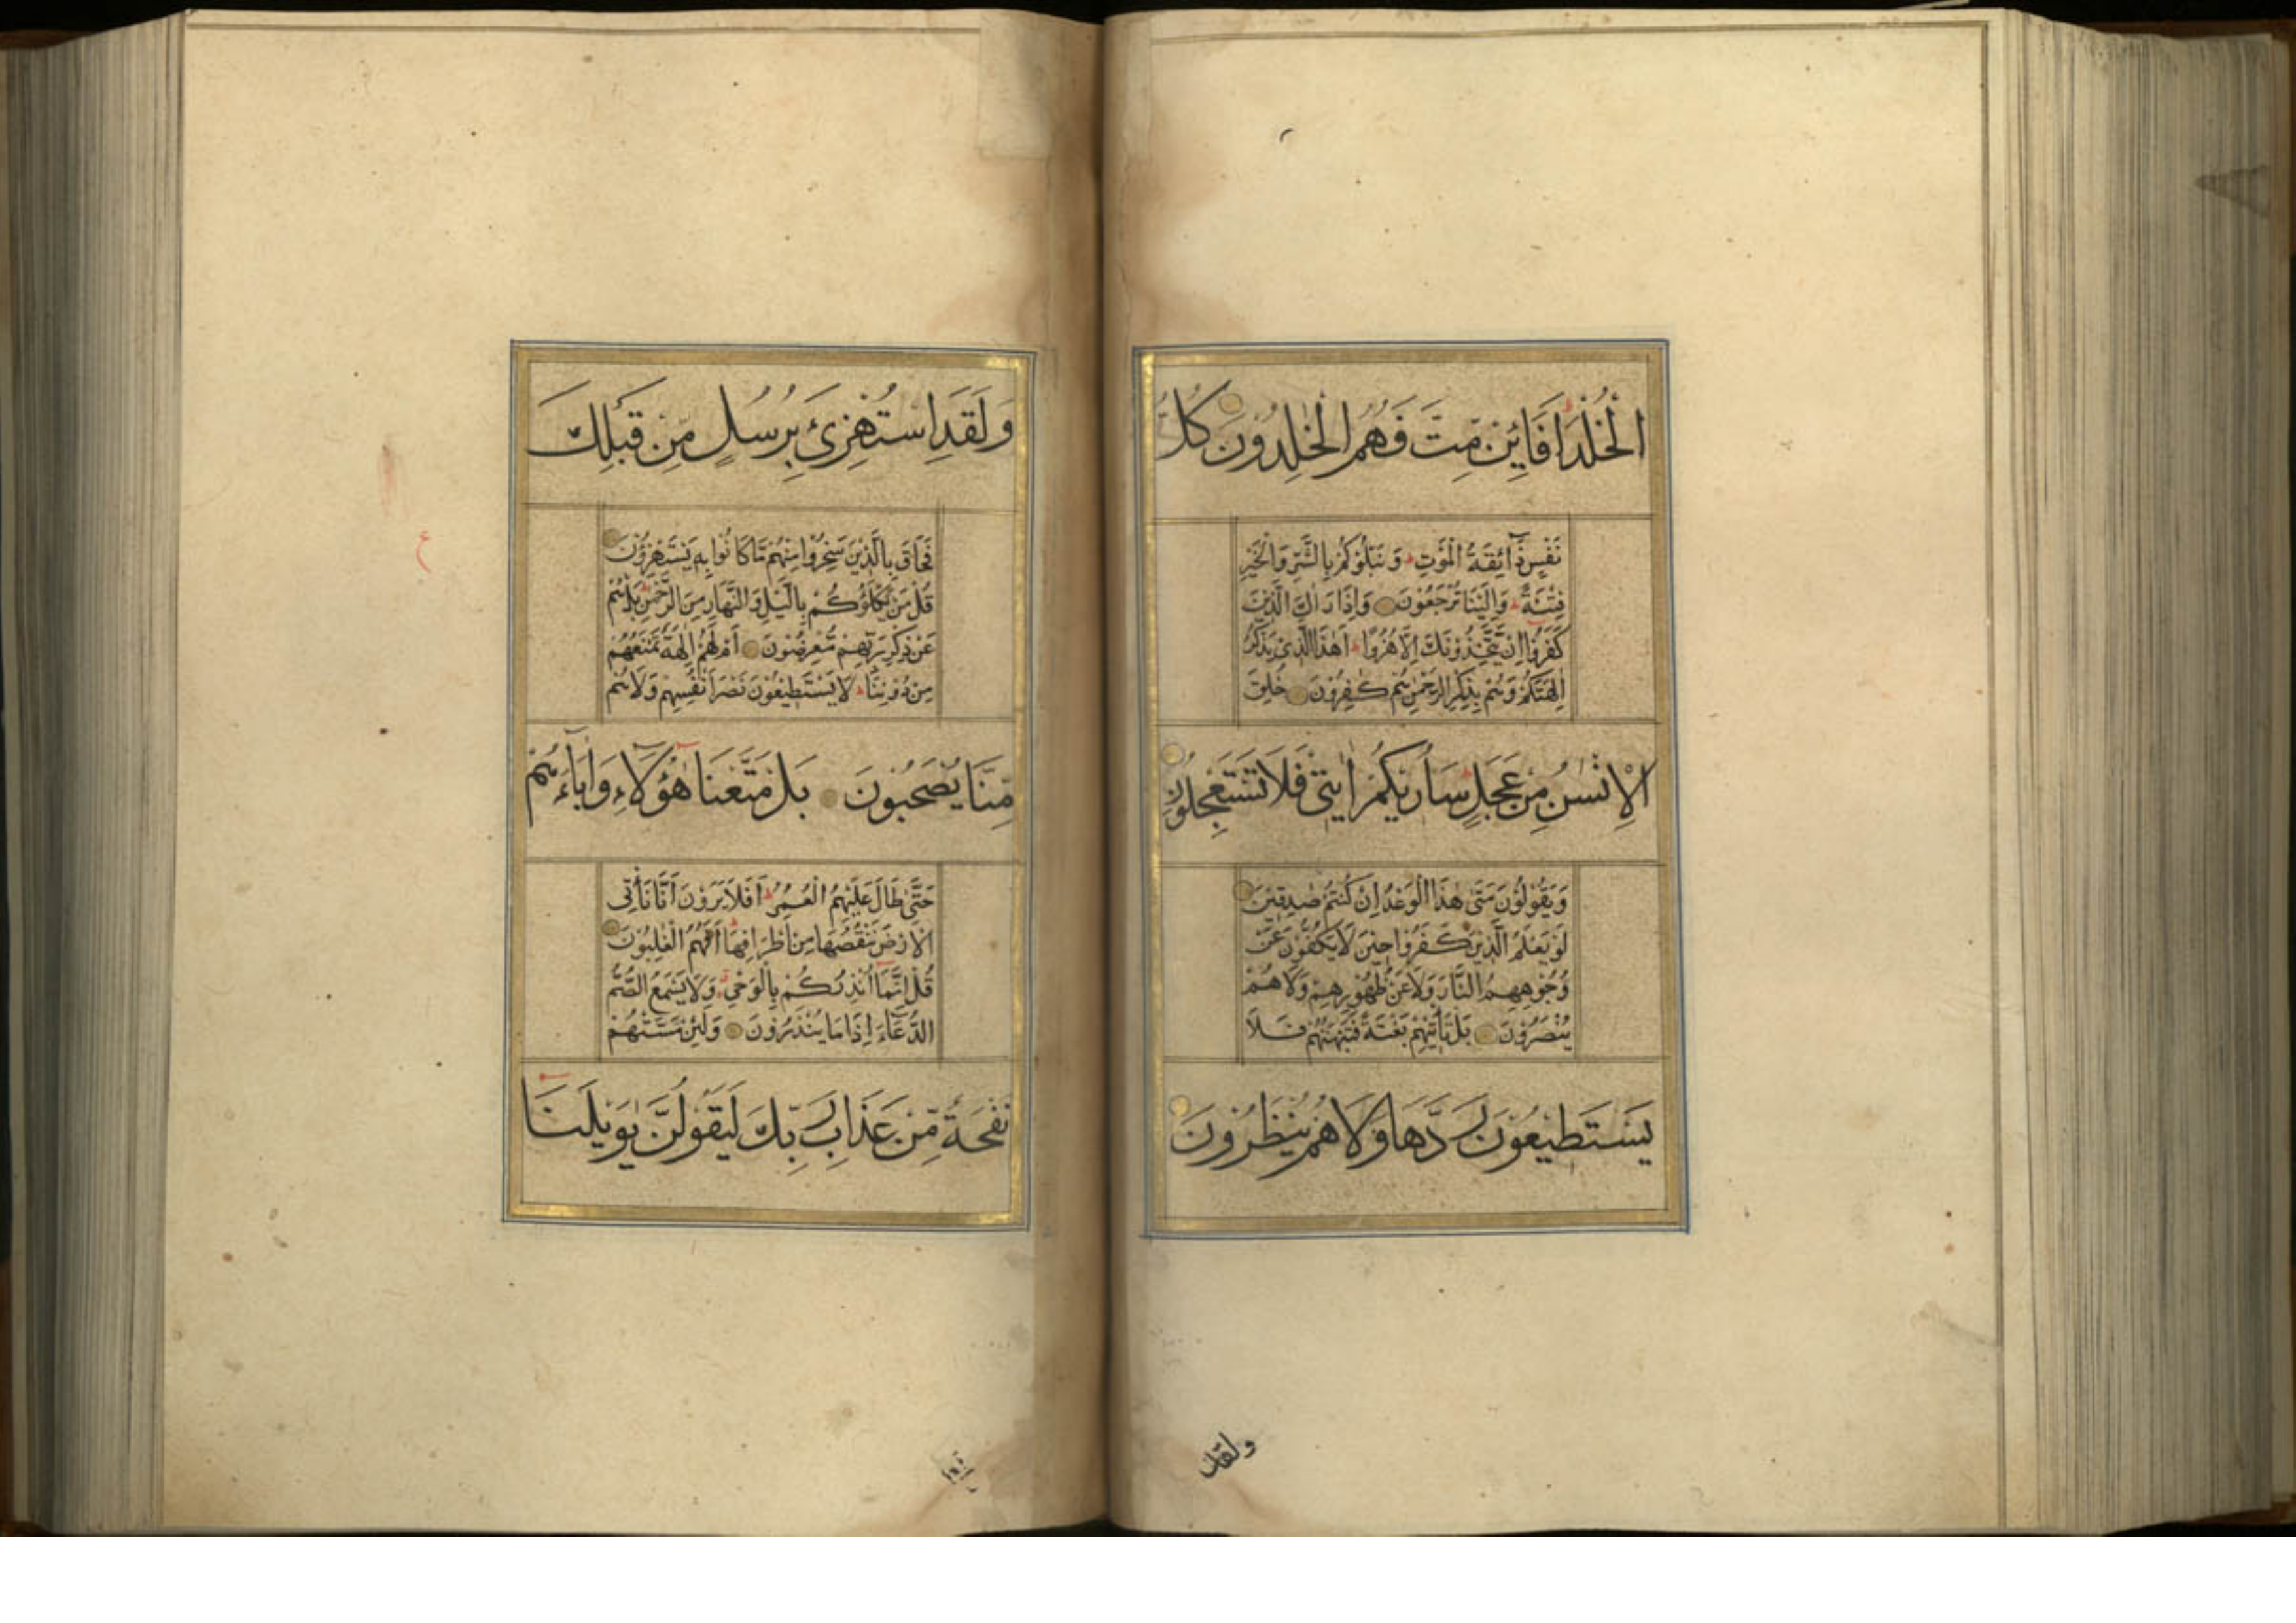 الْخُلْدَ اَفَائِنْ مِّتَّ فَهُمُ الْخٰلِدُوْنَ كُلُّ
نَفْسٍ ذَآئِقَةُ الْمَوْتِ وَنَبْلُوْكُمْ بِالشَّرِّ وَالْخَيْرِ
فِتْنَةً وَاِلَيْنَا تُرْجَعُوْنَ وَاِذَا رَاٰكَ الَّذِيْنَ
كَفَرُوْا اِنْ يَّتَّخِذُوْنَكَ اِلَّا هُزُوًا اَهٰذَا الَّذِيْ يَذْكُرُ
اٰلِهَتَكُمْ وَهُمْ بِذِكْرِ الرَّحْمٰنِ هُمْ كٰفِرُوْنَ خُلِقَ
الْاِنْسٰنُ مِنْ عَجَلٍ سَاُرِيْكُمْ اٰيٰتِيْ فَلَا تَسْتَعْجِلُوْنِ
وَيَقُوْلُوْنَ مَتٰى هٰذَا الْوَعْدُ اِنْ كُنْتُمْ صٰدِقِيْنَ
لَوْ يَعْلَمُ الَّذِيْنَ كَفَرُوْا حِيْنَ لَا يَكُفُّوْنَ عَنْ
وُجُوْهِهِمُ النَّارَ وَلَا عَنْ ظُهُوْرِهِمْ وَلَا هُمْ
يُنْصَرُوْنَ بَلْ تَاْتِيْهِمْ بَغْتَةً فَتَبْهَتُهُمْ فَلَا
يَسْتَطِيْعُوْنَ رَدَّهَا وَلَا هُمْ يُنْظَرُوْنَ
ولقد
وَلَقَدِ اسْتُهْزِئَ بِرُسُلٍ مِّنْ قَبْلِكَ
فَحَاقَ بِالَّذِيْنَ سَخِرُوْا مِنْهُمْ مَّا كَانُوْا بِهٖ يَسْتَهْزِؤُنَ
قُلْ مَنْ يَّكْلَؤُكُمْ بِالَّيْلِ وَالنَّهَارِ مِنَ الرَّحْمٰنِ بَلْ هُمْ
عَنْ ذِكْرِ رَبِّهِمْ مُّعْرِضُوْنَ اَمْ لَهُمْ اٰلِهَةٌ تَمْنَعُهُمْ
مِنْ دُوْنِنَا لَا يَسْتَطِيْعُوْنَ نَصْرَ اَنْفُسِهِمْ وَلَا هُمْ
مِّنَّا يُصْحَبُوْنَ بَلْ مَتَّعْنَا هٰؤُلَاءِ وَاٰبَاءَهُمْ
حَتّٰى طَالَ عَلَيْهِمُ الْعُمُرُ اَفَلَا يَرَوْنَ اَنَّا نَاْتِى
الْاَرْضَ نَنْقُصُهَا مِنْ اَطْرَافِهَا اَفَهُمُ الْغٰلِبُوْنَ
قُلْ اِنَّمَا اُنْذِرُكُمْ بِالْوَحْيِ وَلَا يَسْمَعُ الصُّمُّ
الدُّعَآءَ اِذَا مَا يُنْذَرُوْنَ وَلَئِنْ مَّسَّتْهُمْ
نَفْحَةٌ مِّنْ عَذَابِ رَبِّكَ لَيَقُوْلُنَّ يٰوَيْلَنَا
ع